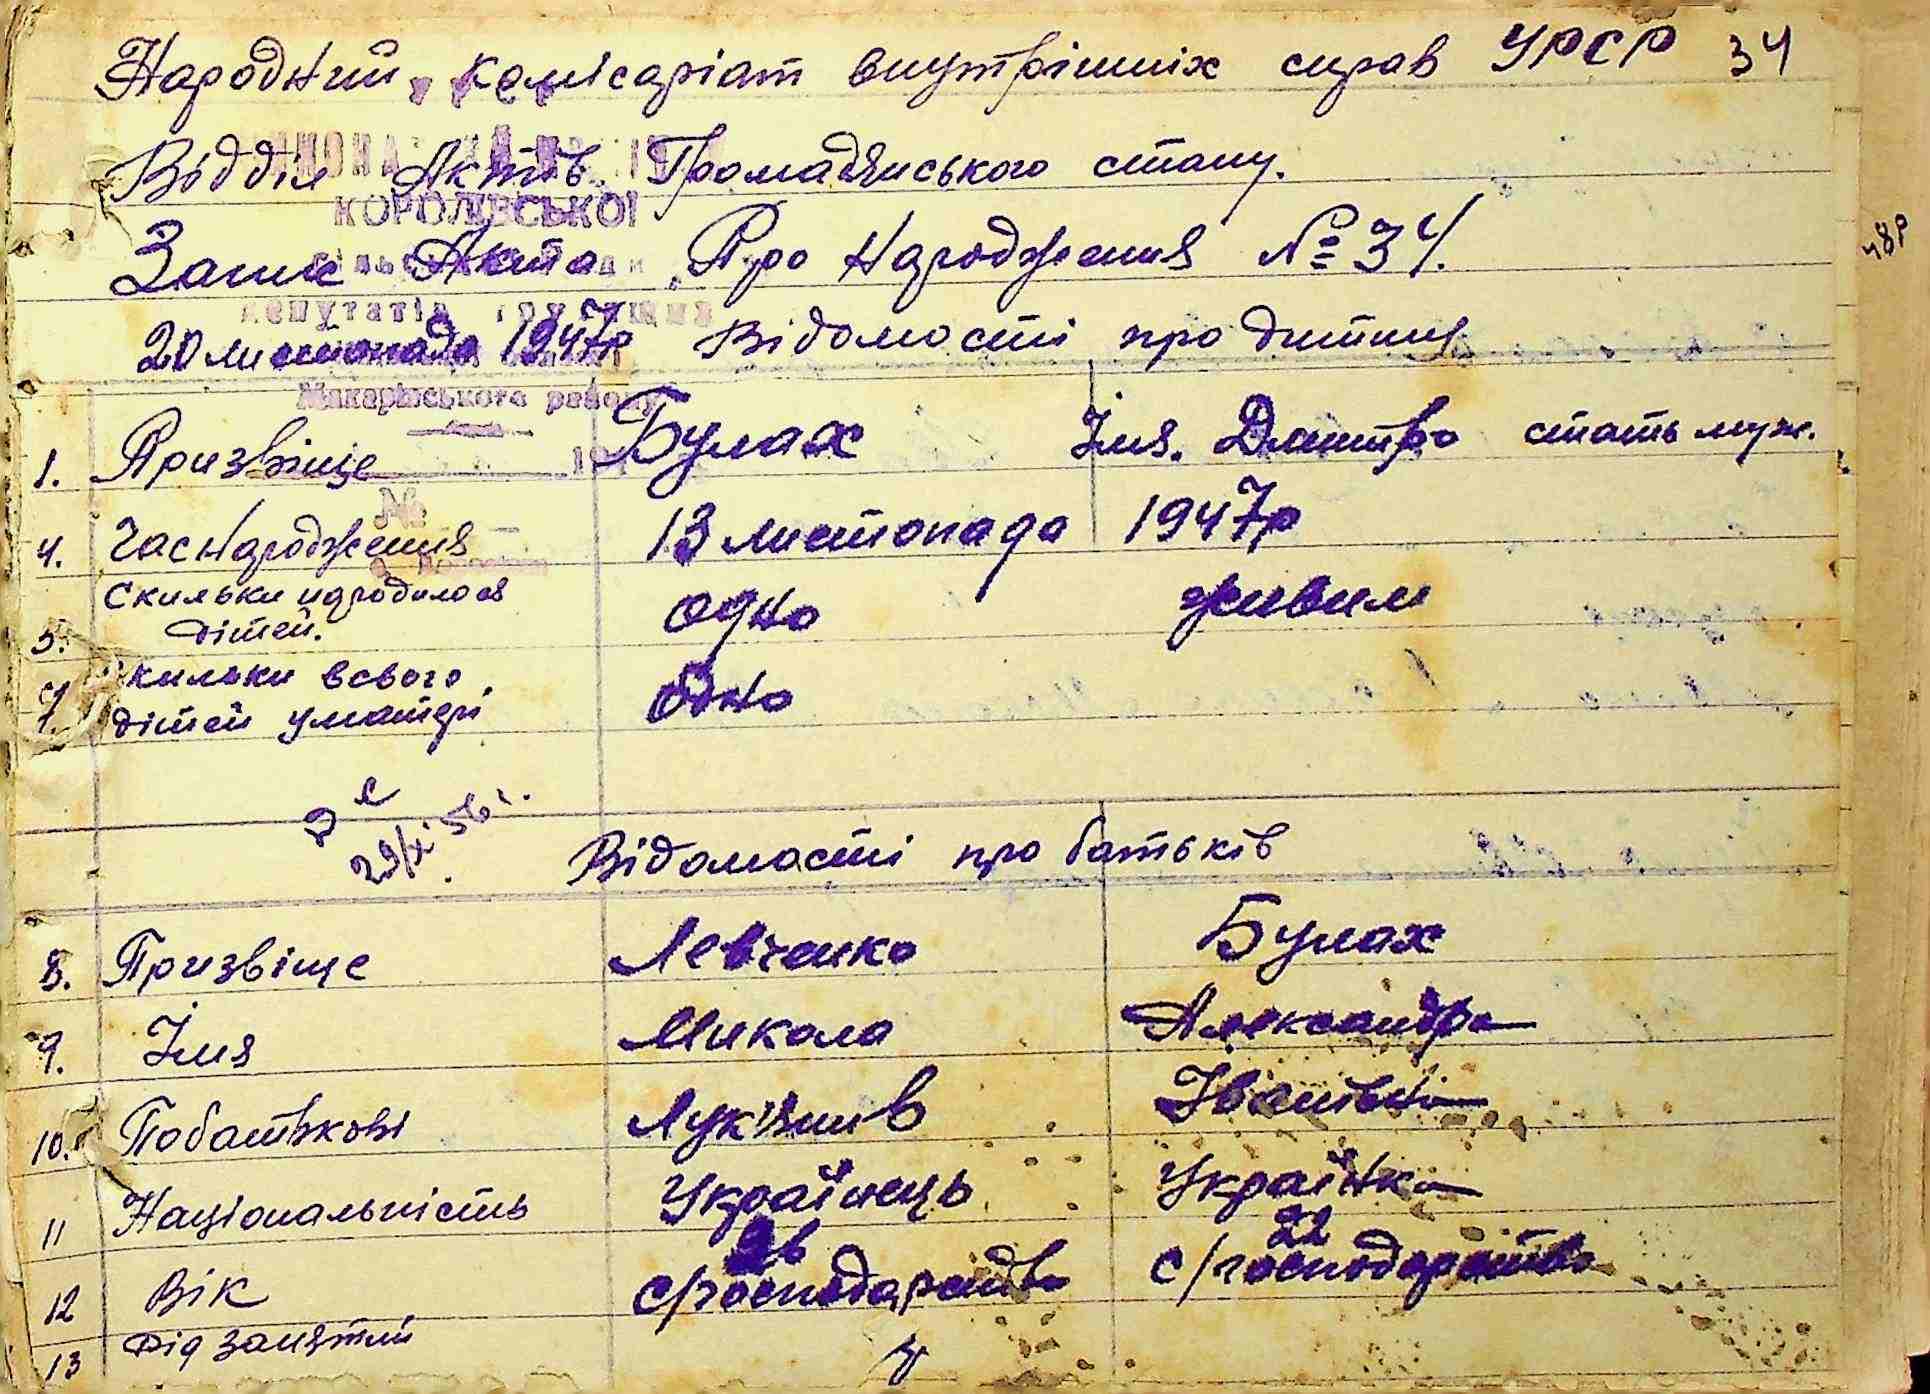 Народний комісаріат внутрішніх справ УРСР 34
Відділ Актів Громадянського стану.
КОРОЛІВСЬКОЇ
Запис Акта Про народження № 34.
депутатів трудящих
20 листопада 1947р Відомості про дитину
Макарівського району
1. Призвіще Булах Імя. Дмитро стать муж.
№
4. Час народження 13 листопада 1947р
Скильки народилося
5. дітей. одно живим
7. кильки всього
дітей у матері одно
29/XI 56 г.
Відомості про батьків
8. Призвіще Левченко Булах
9. Імя Микола Александра
10. Побатькові Лук'янів Іванівна
11 Національність Українець Українка
12 Вік 26 22
13 Рід занятий с/господарство с/господарство
48р